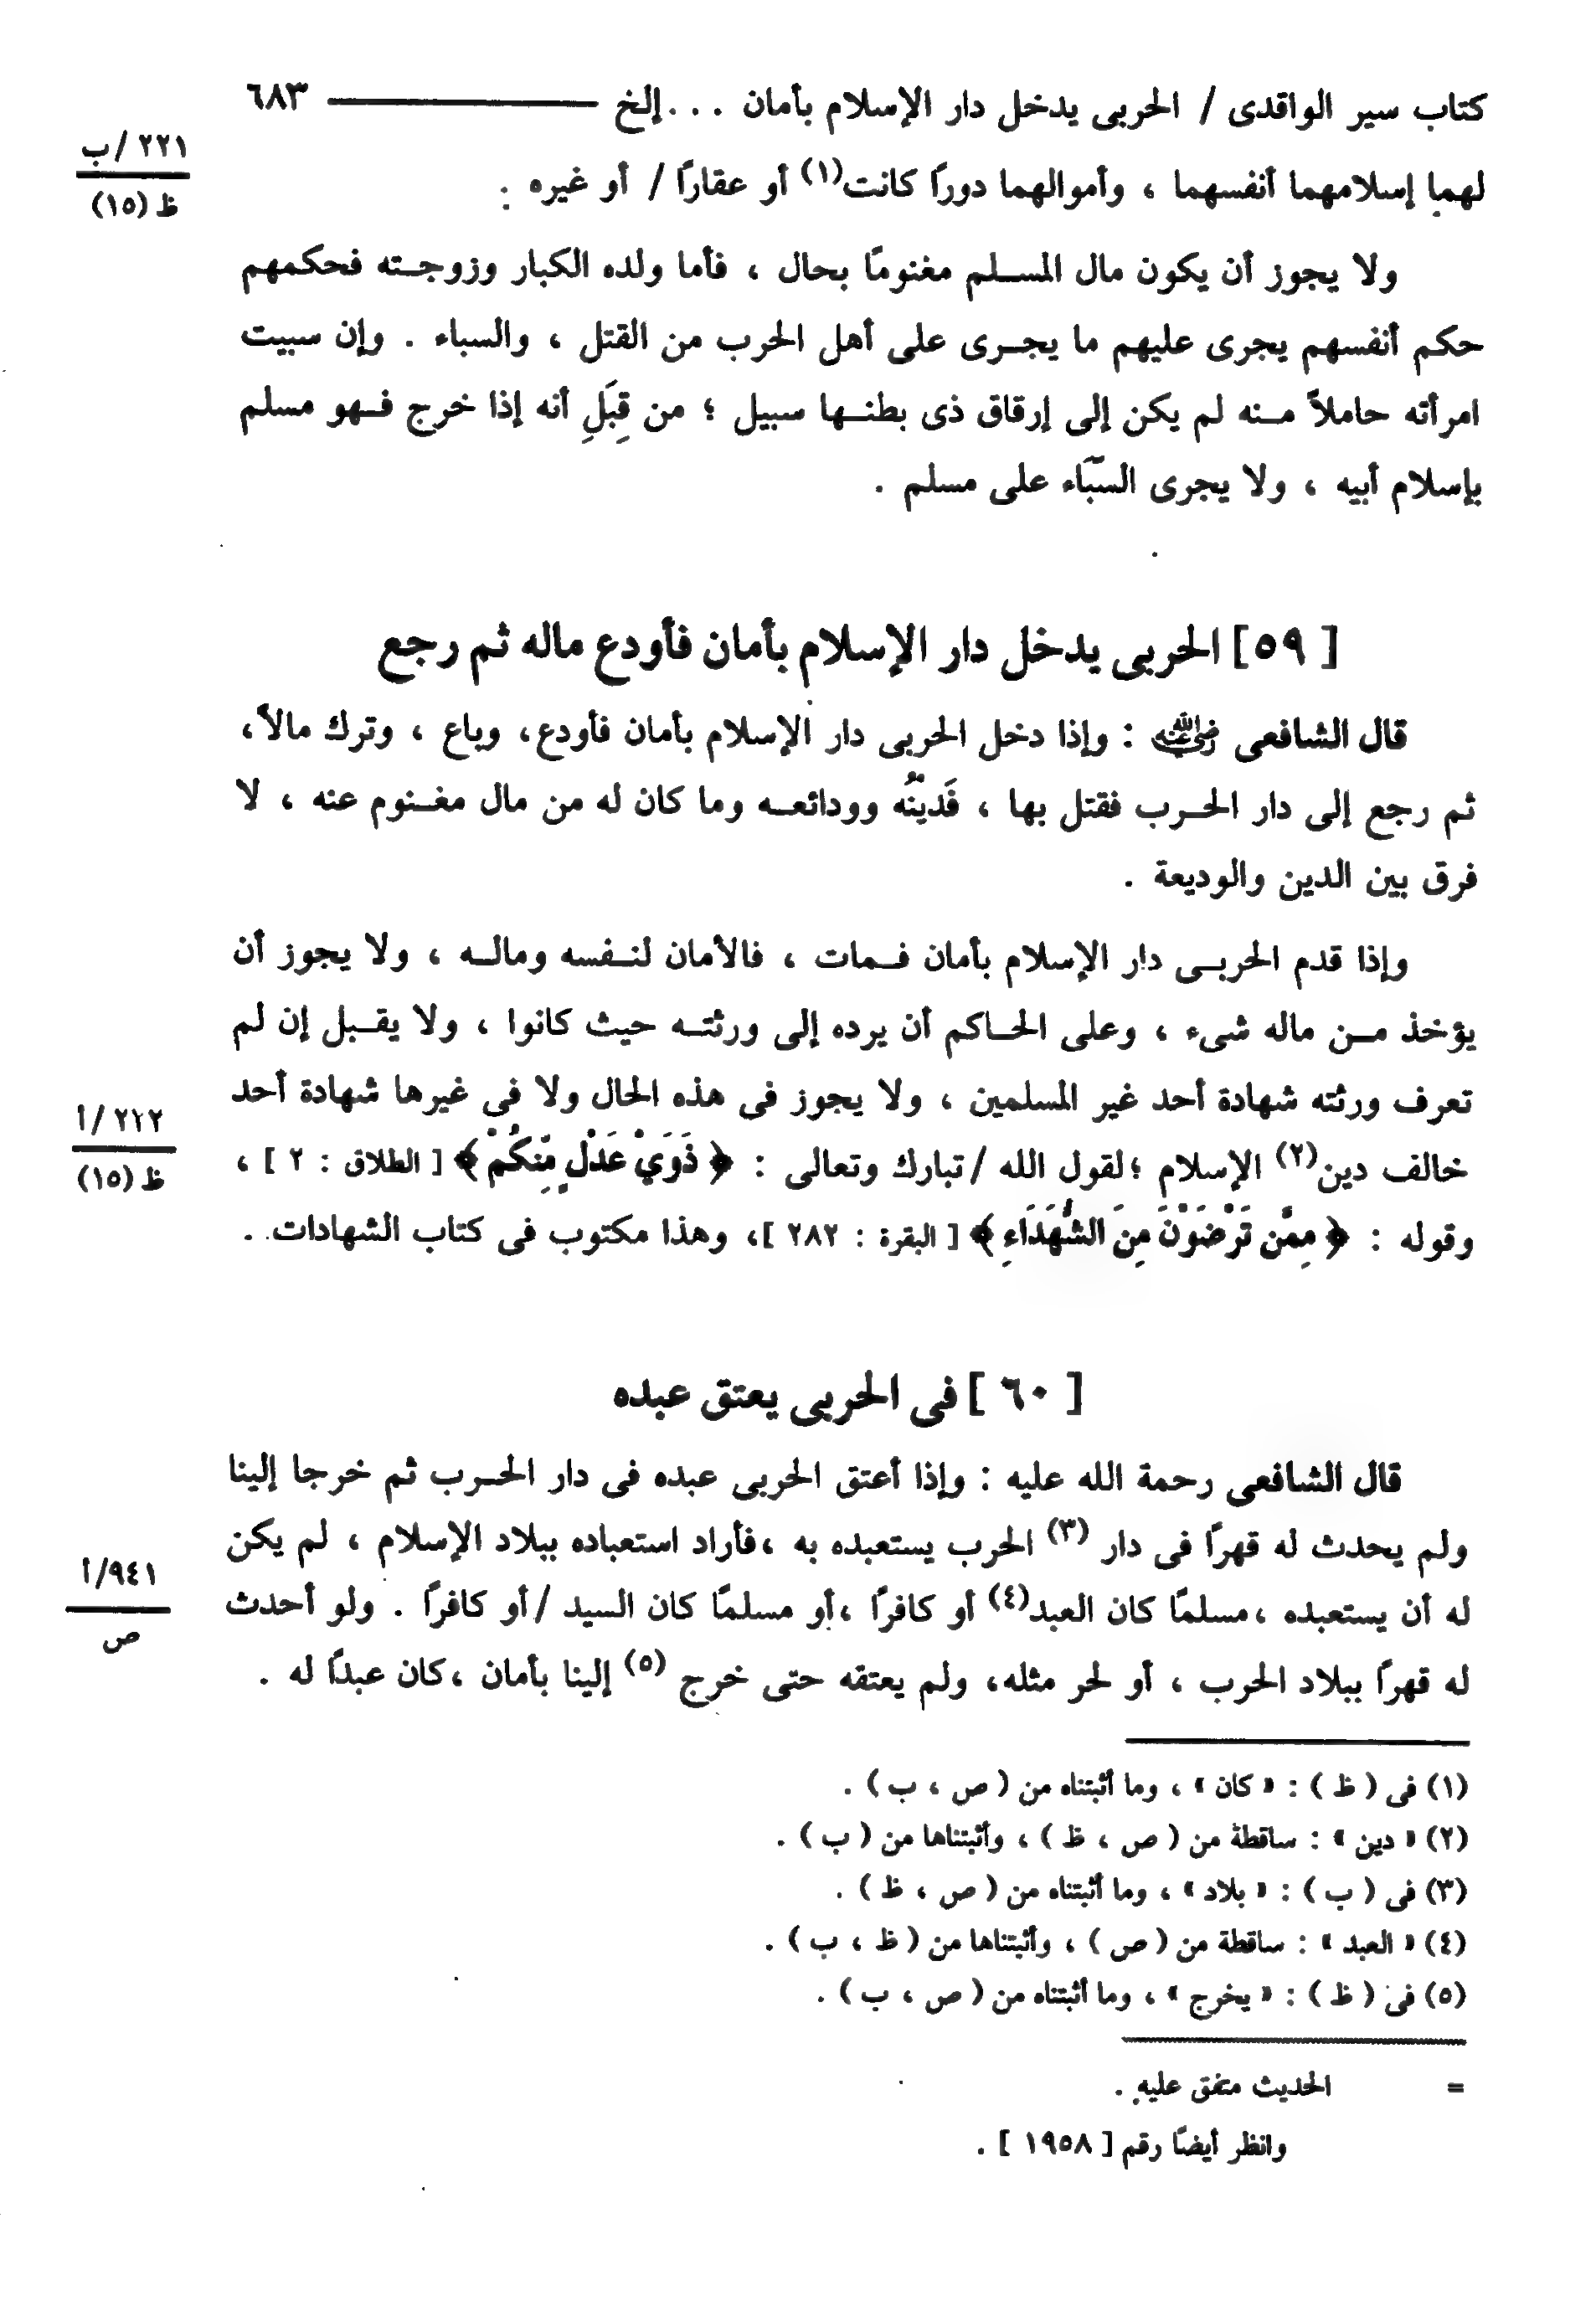 كتاب سير الواقدى / الحربى يدخل دار الإسلام بأمان . . . إلخ ٦٨٣
٢٢١ /ب
ظ (١٥)
لهما إسلامهما أنفسهما ، وأموالهما دورًا كانت(١) أو عقارًا / أو غيره .
ولا يجوز أن يكون مال المسلم مغنومًا بحال ، فأما ولده الكبار وزوجته فحكمهم
حكم أنفسهم يجرى عليهم ما يجرى على أهل الحرب من القتل ، والسباء . وإن سبيت
امرأته حاملاً منه لم يكن إلى إرقاق ذى بطنها سبيل ؛ من قِبَلِ أنه إذا خرج فهو مسلم
بإسلام أبيه ، ولا يجرى السبَّاء على مسلم .
[ ٥٩ ] الحربى يدخل دار الإسلام بأمان فأودع ماله ثم رجع
قال الشافعى رضي الله عنه : وإذا دخل الحربى دار الإسلام بأمان فأودع، وباع ، وترك مالاً،
ثم رجع إلى دار الحرب فقتل بها ، فَدينُه وودائعه وما كان له من مال مغنوم عنه ، لا
فرق بين الدين والوديعة .
وإذا قدم الحربى دار الإسلام بأمان فمات ، فالأمان لنفسه وماله ، ولا يجوز أن
يؤخذ من ماله شىء ، وعلى الحاكم أن يرده إلى ورثته حيث كانوا ، ولا يقبل إن لم
تعرف ورثته شهادة أحد غير المسلمين ، ولا يجوز فى هذه الحال ولا فى غيرها شهادة أحد
٢١٢ /أ
ظ (١٥)
خالف دين(٢) الإسلام ؛لقول الله /تبارك وتعالى : ﴿ ذَوَيْ عَدْلٍ مِّنكُمْ ﴾ [ الطلاق : ٢ ] ،
وقوله : ﴿ مِمَّن تَرْضَوْنَ مِنَ الشُّهَدَاءِ ﴾ [ البقرة : ٢٨٢ ]، وهذا مكتوب فى كتاب الشهادات .
[ ٦٠ ] فى الحربى يعتق عبده
قال الشافعى رحمة الله عليه : وإذا أعتق الحربى عبده فى دار الحرب ثم خرجا إلينا
ولم يحدث له قهرًا فى دار (٣) الحرب يستعبده به ،فأراد استعباده ببلاد الإسلام ، لم يكن
٩٤١/أ
ص
له أن يستعبده ،مسلمًا كان العبد(٤) أو كافرًا ،أو مسلمًا كان السيد /أو كافرًا . ولو أحدث
له قهرًا ببلاد الحرب ، أو لحر مثله، ولم يعتقه حتى خرج (٥) إلينا بأمان ،كان عبدًا له .
(١) فى ( ظ ) : « كان » ، وما أثبتناه من ( ص ، ب ) .
(٢) « دين » : ساقطة من ( ص ، ظ ) ، وأثبتناها من ( ب ) .
(٣) فى ( ب ) : « بلاد » ، وما أثبتناه من ( ص ، ظ ) .
(٤) « العبد » : ساقطة من ( ص ) ، وأثبتناها من ( ظ ، ب ) .
(٥) فى ( ظ ) : « يخرج » ، وما أثبتناه من ( ص ، ب ) .
= الحديث متفق عليه .
وانظر أيضًا رقم [ ١٩٥٨ ] .